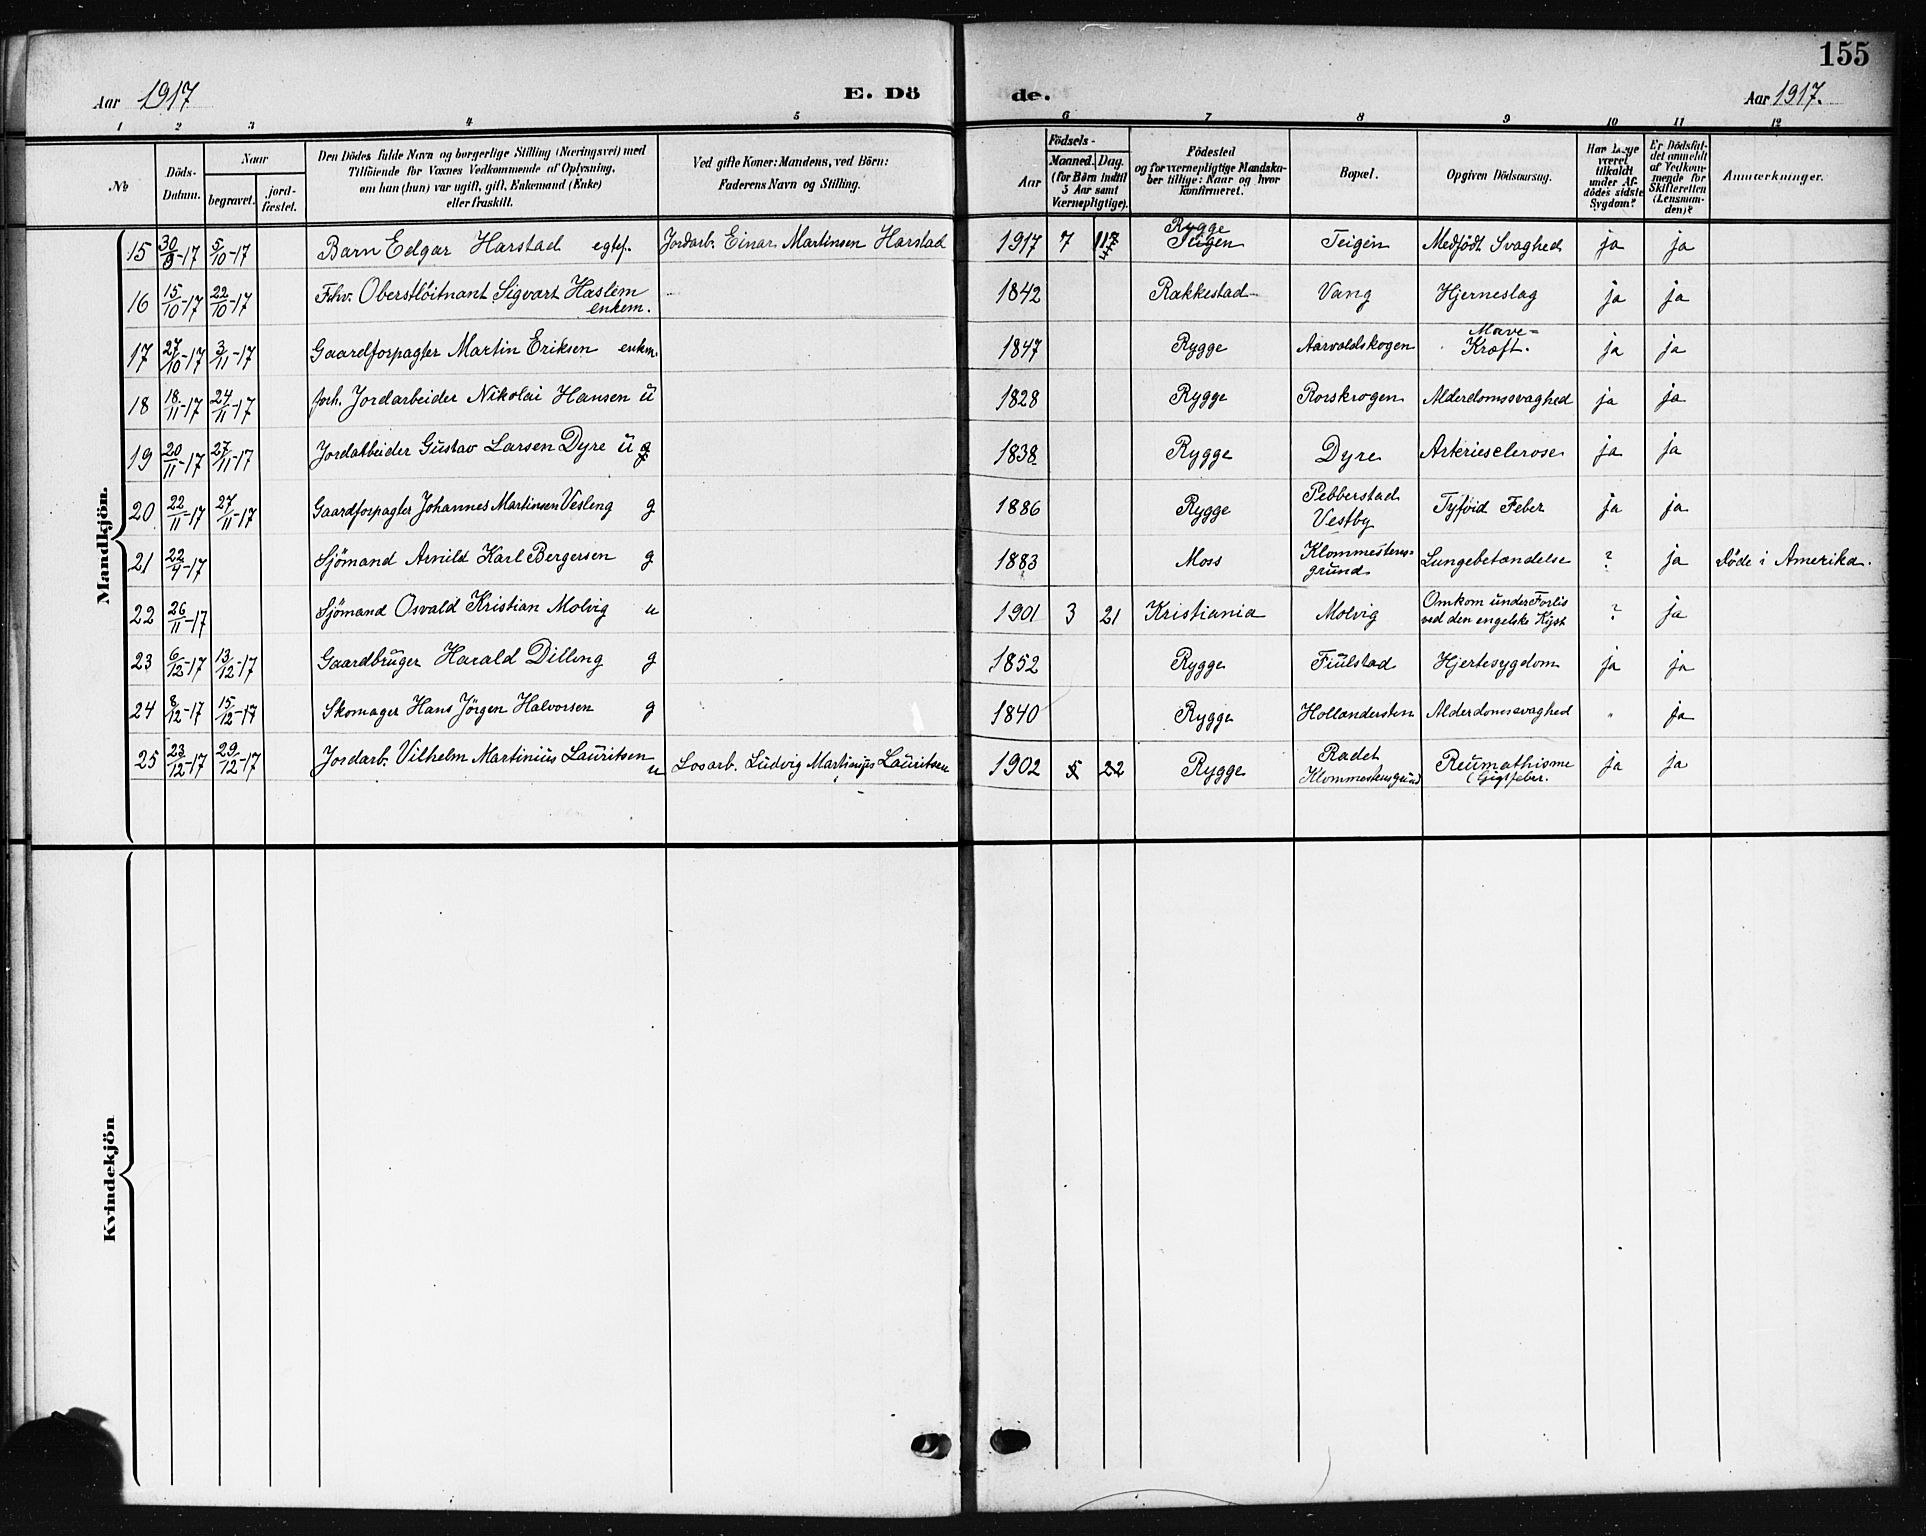 155
Aar 1917 E. Dö de. Aar 1917.
1 2 3 4 5 6 7 8 9 10 11 12
No
Döds-Datum.
Naar
begravet.
jord-fæstet.
Den Dödes fulde Navn og borgerlige Stilling (Næringsvei) med
Tilföiende for Voxnes Vedkommende af Oplysning,
om han (hun) var ugift, gift, Enkemand (Enke)
eller fraskilt.
Ved gifte Koner: Mandens, ved Börn:
Faderens Navn og Stilling.
Födsels-
Aar Maaned. Dag.
(for Börn indtil
5 Aar samt
Værnepligtige).
Födested
og for værnepligtige Mandska-
ber tillige: Naar og hvor
konfirmeret.
Bopæl.
Opgiven Dödsaarsag.
Har Læge
været
tilkaldt
under Af-
dödes sidste
Sygdom?
Er Dödsfal-
det anmeldt
af Vedkom-
mende for
Skifteretten
(Lensman-
den)?
Anmærkninger.
Mandkjön.
15 30/9-17 5/10-17 Barn Edgar Harstad egtef. Jordarb. Einar Martinsen Harstad 1917 7 Rygge Teigen Teigen Medfödt Svaghed ja ja
16 15/10-17 22/10-17 Fhv. Oberstlöitnant Sigvart Haslem enkem. 1842 Rakkestad Vang Hjerneslag ja ja
17 27/10-17 3/11-17 Gaardforpagter Martin Eriksen enkm. 1847 Rygge Aarvoldskogen Mave-Kræft. ja ja
18 18/11-17 24/11-17 forh. Jordarbeider Nikolai Hansen u 1828 Rygge Rorskrogen Alderdomssvaghed ja ja
19 20/11-17 27/11-17 Jordarbeider Gustav Larsen Dyre u g 1838 Rygge Dyre Arteriesclerose ja ja
20 22/11-17 27/11-17 Gaardforpagter Johannes Martinsen Vesleng g 1886 Rygge Pebberstad Vestby Tyfoid Feber ja ja
21 22/9-17 Sjömand Arnild Karl Bergersen g 1883 Moss Klommestens-grund Lungebetændelse ? ja Döde i Amerika.
22 26/11-17 Sjömand Osvald Kristian Molvig u 1901 3 21 Kristiania Molvig Omkom under Forlis ved den engelske Kyst ? ja
23 6/12-17 13/12-17 Gaardbruger Harald Dilling g 1852 Rygge Fiulstad Hjertesygdom ja ja
24 8/12-17 15/12-17 Skomager Hans Jörgen Halvorsen g 1840 Rygge Hollandersten Alderdomssvaghed " ja
25 23/12-17 29/12-17 Jordarb. Vilhelm Martinius Lauritsen u Losarb. Ludvig Martinius Lauritsen 1902 5 22 Rygge Radet Klommestensgrund Reumathisme (Gigtfeber. ja ja
Kvindekjön